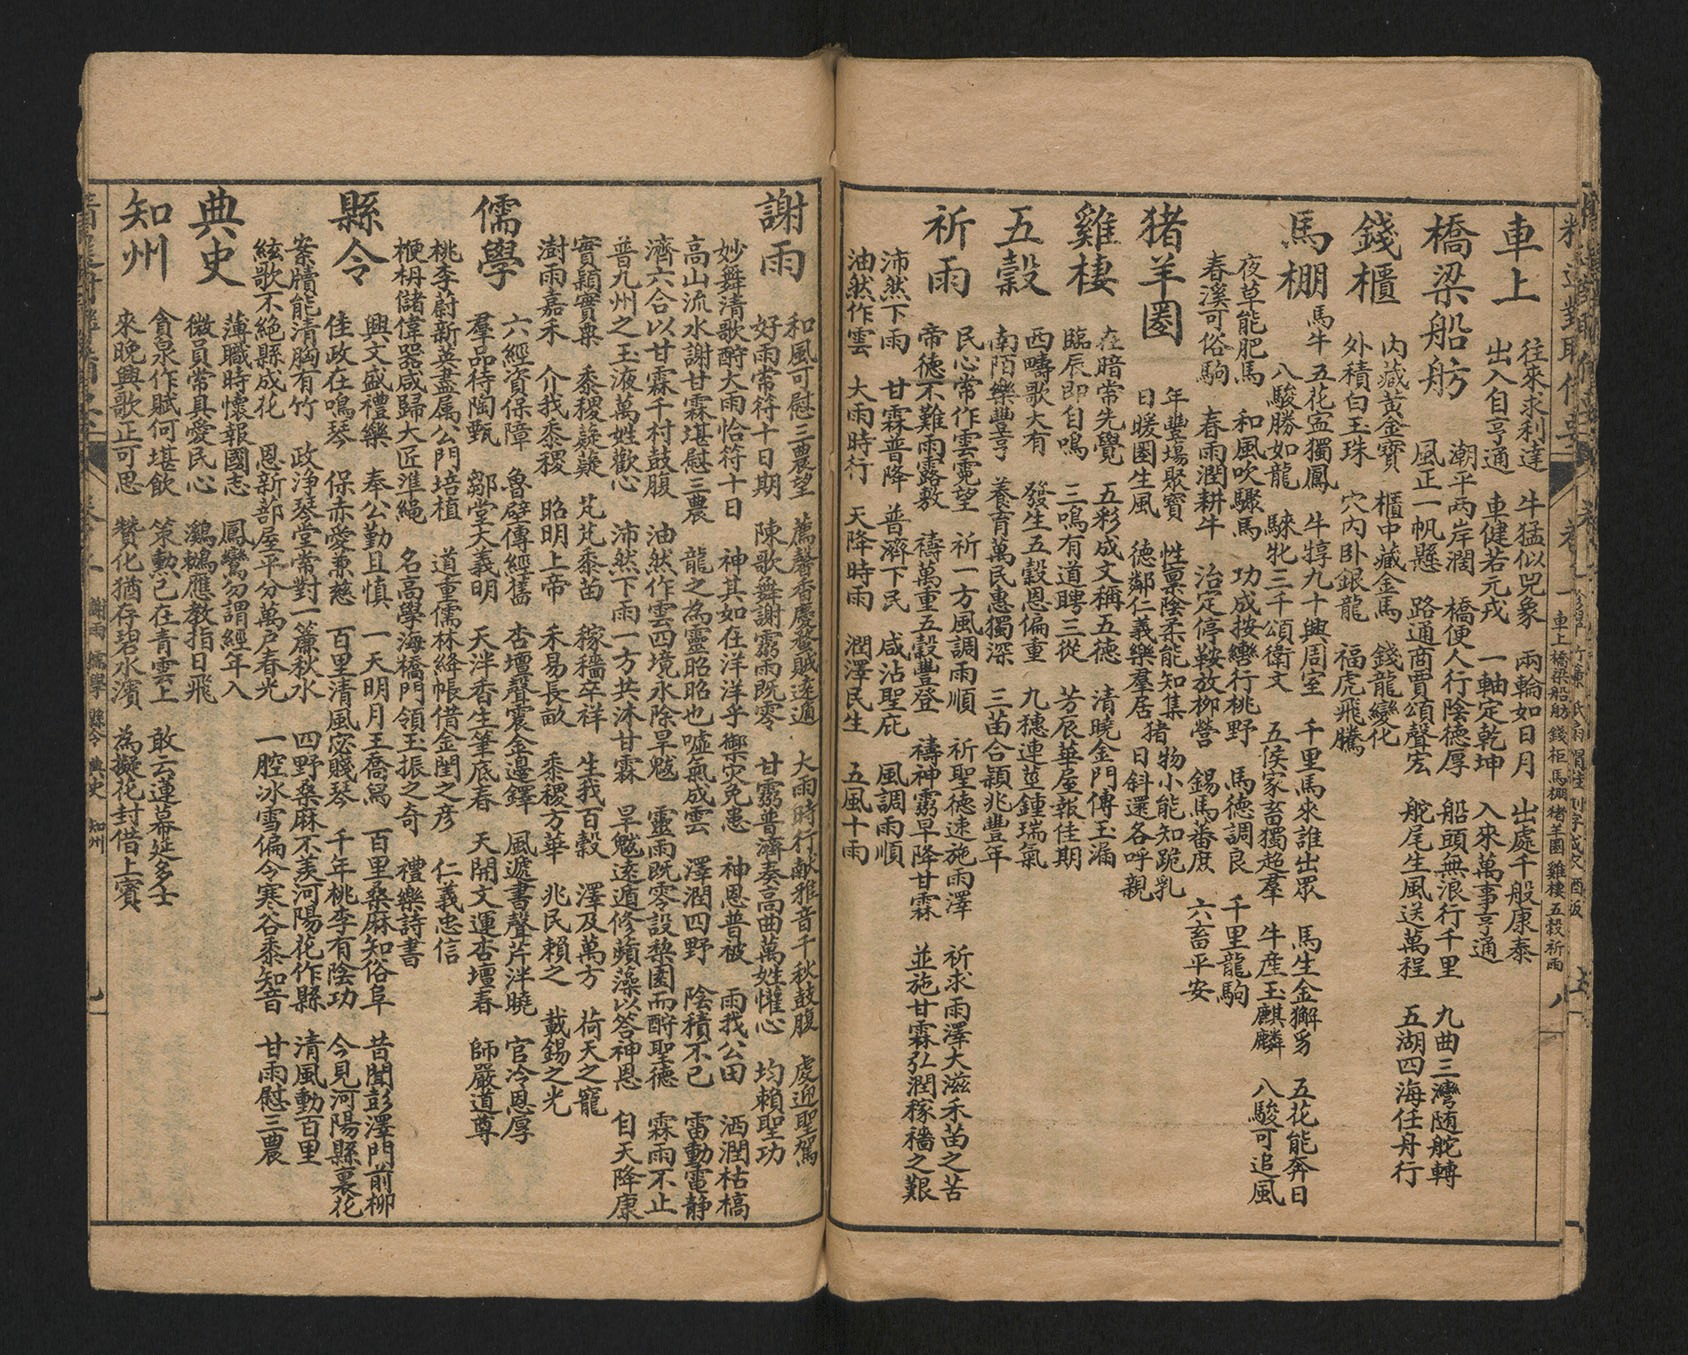 車上
往來求利達 牛猛似兕象 兩輪如日月 出處千般康泰
出入自亨通 車健若元戎 一軸定乾坤 入來萬事亨通
橋梁船舫
潮平兩岸潤 橋便人行陰德厚 船頭無浪行千里 九曲三灣随舵轉
風正一帆懸 路通商賈頌聲宏 舵尾生風送萬程 五湖四海任舟行
錢櫃
內藏黃金寶 櫃中藏金馬 錢龍變化
外積白玉珠 穴內卧銀龍 福虎飛騰
馬棚
馬牛 五花寍獨鳳 牛犉九十興周室 千里馬來誰出眾 馬生金獬豸 五花能奔日
八駿勝如龍 騋牝三千頌衛文 五侯家畜獨超羣 牛産玉麒麟 八駿可追風
夜草能肥馬 和風吹驟馬 功成按轡行桃野 馬德調良 千里龍駒
春溪可俗駒 春雨潤耕牛 治定停鞍放柳營 錫馬蕃庶 六畜平安
猪羊圈
年豐場聚寳 性禀陰柔能知集 猪物小能知跪乳
日暖圈生風 德鄰仁義樂羣居 日斜還各呼親
雞棲
在暗常先覺 五彩成文稱五德 清曉金門傳玉漏
臨辰即自鳴 三鳴有道聘三從 芳辰華屋報佳期
五穀
西疇歌大有 發生五穀恩偏重 九穗連莖鍾瑞氣
南陌樂豐亨 養育萬民惠獨深 三苗合穎兆豐年
祈雨
民心常作雲霓望 祈一方風調雨順 祈聖德速施雨澤 祈求雨澤大滋禾苗之苦
帝德不難雨露敷 禱萬重五穀豐登 禱神霛早降甘霖 並施甘霖弘潤稼穡之艱
沛然下雨 甘霖普降 普濟下民 咸沾聖庇 風調雨順
油然作雲 大雨時行 天降時雨 潤澤民生 五風十雨
車上 橋梁船舫 錢柜 馬棚 猪羊圈 雞棲 五穀 祈雨
謝雨
和風可慰三農望 薦馨香慶蝥賊遠遁 大雨時行献雅音千秋鼓腹 處迎聖駕
好雨常符十日期 陳歌舞謝霛雨既零 甘霛普濟奏高曲萬姓懽心 均賴聖功
妙舞清歌酧大雨恰符十日 神其如在洋洋乎禦灾免患 神恩普被 雨我公田 洒潤枯槁
高山流水謝甘霖堪慰三農 龍之為靈昭昭也嘘氣成雲 澤潤四野 陰積不已 雷動電静
濟六合以甘霖千村鼓腹 油然作雲四境水除旱魃 靈雨既零設棃園而酧聖德 霖雨不止
普九州之玉液萬姓歡心 沛然下雨一方共沐甘霖 旱魃遠遁修蘋藻以答神恩 自天降康
實穎實粟 黍稷薿薿 芃芃黍苗 稼穡卒祥 生我百穀 澤及萬方 荷天之寵
澍雨嘉禾 介我黍稷 昭明上帝 禾易長畝 黍稷方華 兆民賴之 載錫之光
儒學
六經資保障 魯壁傳經舊 杏壇聲震金邊鐸 風遞書聲芹泮曉 官冷恩厚
羣品待陶甄 鄒堂大義明 天泮香生筆底春 天開文運杏壇春 師嚴道尊
桃李蔚新英盡属公門培植 道重儒林絳帳借金閨之彦 仁義忠信
梗枏儲偉器咸歸大匠準繩 名高學海橋門領玉振之奇 禮樂詩書
縣令
興文盛禮樂 奉公勤且慎 一天明月王喬舄 百里桑麻知俗阜 昔聞彭澤門前柳
佳政在鳴琴 保赤愛兼慈 百里清風宓賤琴 千年桃李有陰功 今見河陽縣裏花
案牘能清胸有竹 政浄琴堂常對一簾秋水 四野桑麻不羨河陽花作縣 清風動百里
絃歌不絕縣成花 恩新部屋平分萬户春光 一腔冰雪偏令寒谷黍知音 甘雨慰三農
典史
薄職時懷報國志 鳳鸞勿謂經年入
微員常具愛民心 鸂鶒應教指日飛
知州
貪泉作賦何堪飲 策勲已在青雲上 敢云連幕延多士
來晚興歌正可思 贊化猶存碧水濱 為擬花封借上賓
謝雨 儒學 縣令 典史 知州